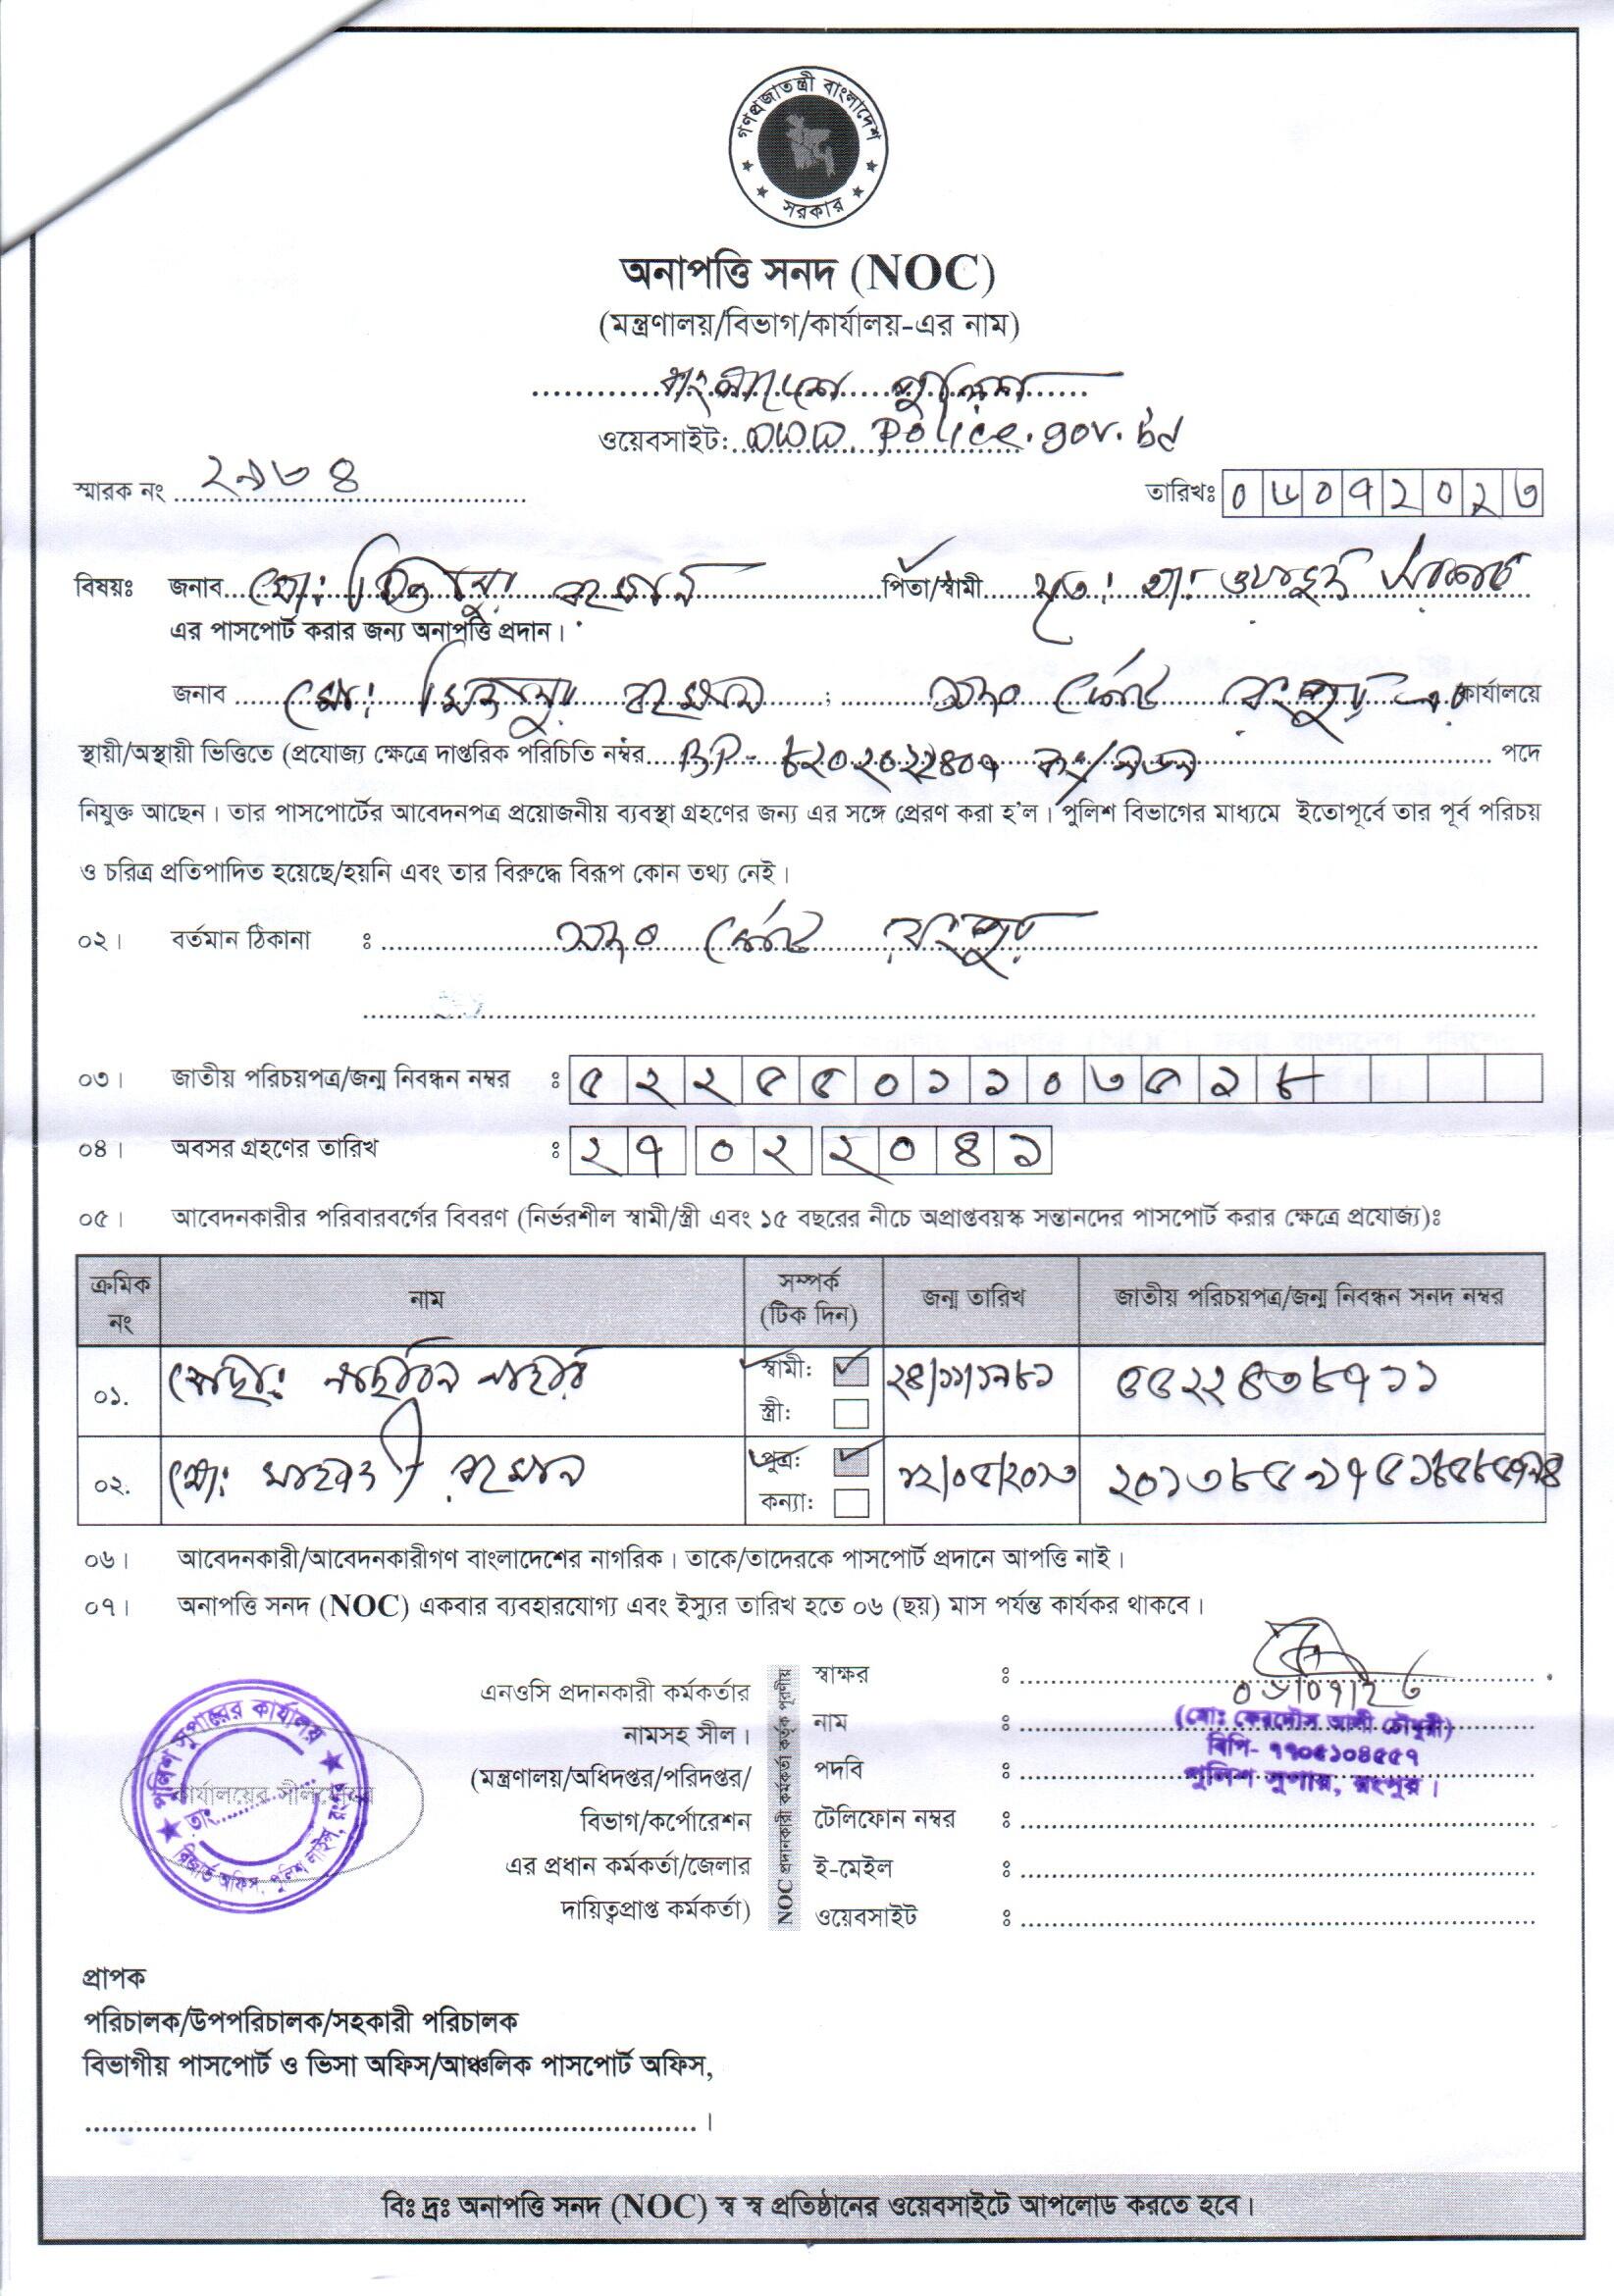 গণপ্রজাতন্ত্রী বাংলাদেশ
সরকার
অনাপত্তি সনদ (NOC)
(মন্ত্রণালয়/বিভাগ/কার্যালয়-এর নাম)
বাংলাদেশ পুলিশ
ওয়েবসাইট: www.Police.gov.bd
স্মারক নং ২৯৬৪
তারিখঃ ০৬০৭২০২৩
বিষয়ঃ জনাব মোঃ রহমান পিতা/স্বামী মৃতঃ
এর পাসপোর্ট করার জন্য অনাপত্তি প্রদান।
জনাব মোঃ রহমান ; কোর্ট রংপুর এর কার্যালয়ে
স্থায়ী/অস্থায়ী ভিত্তিতে (প্রযোজ্য ক্ষেত্রে দাপ্তরিক পরিচিতি নম্বর BP- ৮২০২০২২৪০৭ পদে
নিযুক্ত আছেন। তার পাসপোর্টের আবেদনপত্র প্রয়োজনীয় ব্যবস্থা গ্রহণের জন্য এর সঙ্গে প্রেরণ করা হ'ল। পুলিশ বিভাগের মাধ্যমে ইতোপূর্বে তার পূর্ব পরিচয়
ও চরিত্র প্রতিপাদিত হয়েছে/হয়নি এবং তার বিরুদ্ধে বিরূপ কোন তথ্য নেই।
০২। বর্তমান ঠিকানা ঃ কোর্ট রংপুর
০৩। জাতীয় পরিচয়পত্র/জন্ম নিবন্ধন নম্বর ঃ ৫২২৫৫০১১০৩৫১৮
০৪। অবসর গ্রহণের তারিখ ঃ ২৭০২২০৪১
০৫। আবেদনকারীর পরিবারবর্গের বিবরণ (নির্ভরশীল স্বামী/স্ত্রী এবং ১৫ বছরের নীচে অপ্রাপ্তবয়স্ক সন্তানদের পাসপোর্ট করার ক্ষেত্রে প্রযোজ্য)ঃ
ক্রমিক নং নাম সম্পর্ক (টিক দিন) জন্ম তারিখ জাতীয় পরিচয়পত্র/জন্ম নিবন্ধন সনদ নম্বর
০১. মোছাঃ নাহার স্বামী: ২৪/১১/১৯৮১ ৫৫২২৪৩৮৭১১
স্ত্রী:
০২. মোঃ রহমান পুত্র: ১২/০৫/২০১৩
কন্যা:
০৬। আবেদনকারী/আবেদনকারীগণ বাংলাদেশের নাগরিক। তাকে/তাদেরকে পাসপোর্ট প্রদানে আপত্তি নাই।
০৭। অনাপত্তি সনদ (NOC) একবার ব্যবহারযোগ্য এবং ইস্যুর তারিখ হতে ০৬ (ছয়) মাস পর্যন্ত কার্যকর থাকবে।
পুলিশ সুপারের কার্যালয়
তাং
রিজার্ভ অফিস, পুলিশ লাইন্স, রংপুর
কার্যালয়ের সীলমোহর
এনওসি প্রদানকারী কর্মকর্তার
নামসহ সীল।
(মন্ত্রণালয়/অধিদপ্তর/পরিদপ্তর/
বিভাগ/কর্পোরেশন
এর প্রধান কর্মকর্তা/জেলার
দায়িত্বপ্রাপ্ত কর্মকর্তা)
NOC প্রদানকারী কর্মকর্তা কর্তৃক পূরণীয়
স্বাক্ষর ঃ
০৬/০৭/২৩
নাম ঃ (মোঃ ফেরদৌস আলী চৌধুরী)
বিপি- ৭৭০৫১০৪৫৫৭
পদবি ঃ পুলিশ সুপার, রংপুর।
টেলিফোন নম্বর ঃ
ই-মেইল ঃ
ওয়েবসাইট ঃ
প্রাপক
পরিচালক/উপপরিচালক/সহকারী পরিচালক
বিভাগীয় পাসপোর্ট ও ভিসা অফিস/আঞ্চলিক পাসপোর্ট অফিস,
।
বিঃ দ্রঃ অনাপত্তি সনদ (NOC) স্ব স্ব প্রতিষ্ঠানের ওয়েবসাইটে আপলোড করতে হবে।